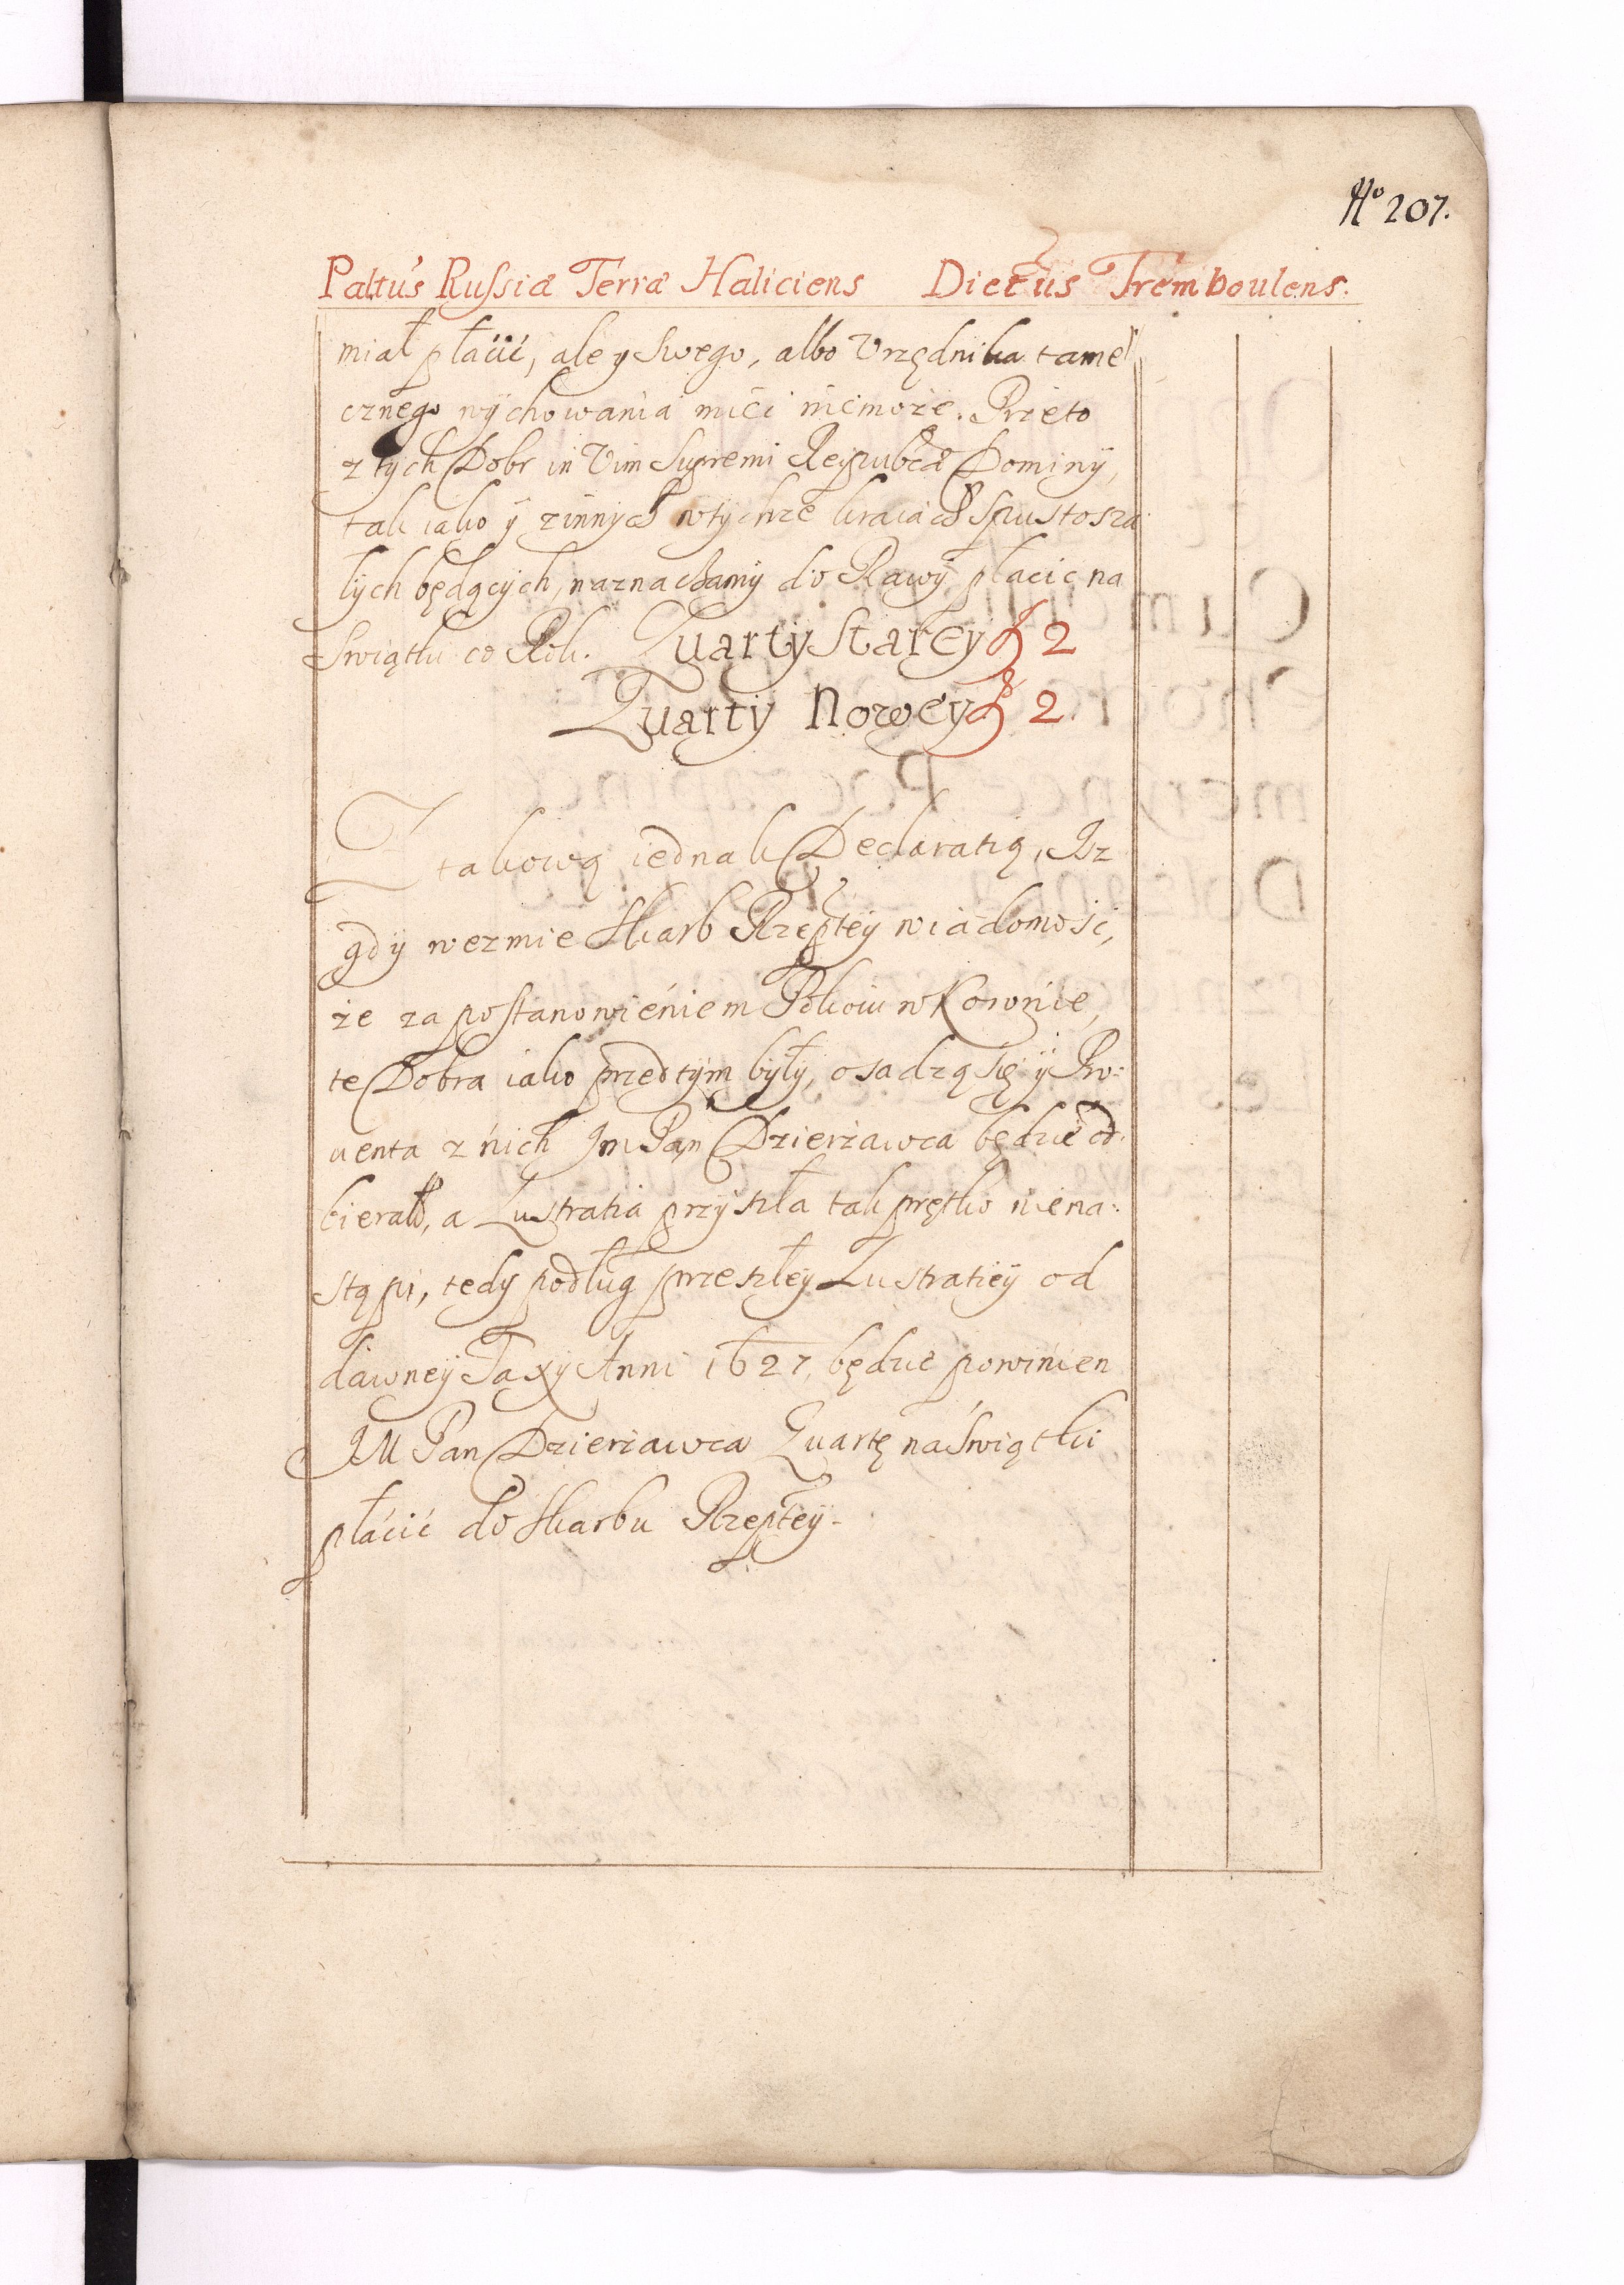 No 207.
Paltus Russiæ Terræ Haliciens Dictus Tremboulens.
miał płacić, ale y swego, albo Vrzędnika tame
cznego wychowania mieć niemoże. Przeto
z tych Dobr in Vim Supremi Reipubcæ Dominÿ,
tak iako ÿ zinnych wtychże kraiach Spustosza
łych będących, naznachamÿ do Rawÿ płacic na
Swiątki co Rok. Quartÿ Starey 2
Quartÿ Nowey 2
Z takową iednak Declaratią, Iż
gdÿ wezmie Skarb Rzeptey wiadomość,
że za postanowieniem Pokoiu w Koronie,
te Dobra iako przedtÿm bÿłÿ, osadzą się ÿ Pro:
uenta z nich Im Pan Dzierżawca będzie od:
bierał, a Lustratia przÿszła tak prętko niena:
stąpi, tedÿ podług przeszłeÿ Lustratiÿ od
dawneÿ Taxÿ Anni 1627, będzie powinien
IM Pan Dzierżawca Quartę na Swiątki
płacić do Skarbu Rzepteÿ.